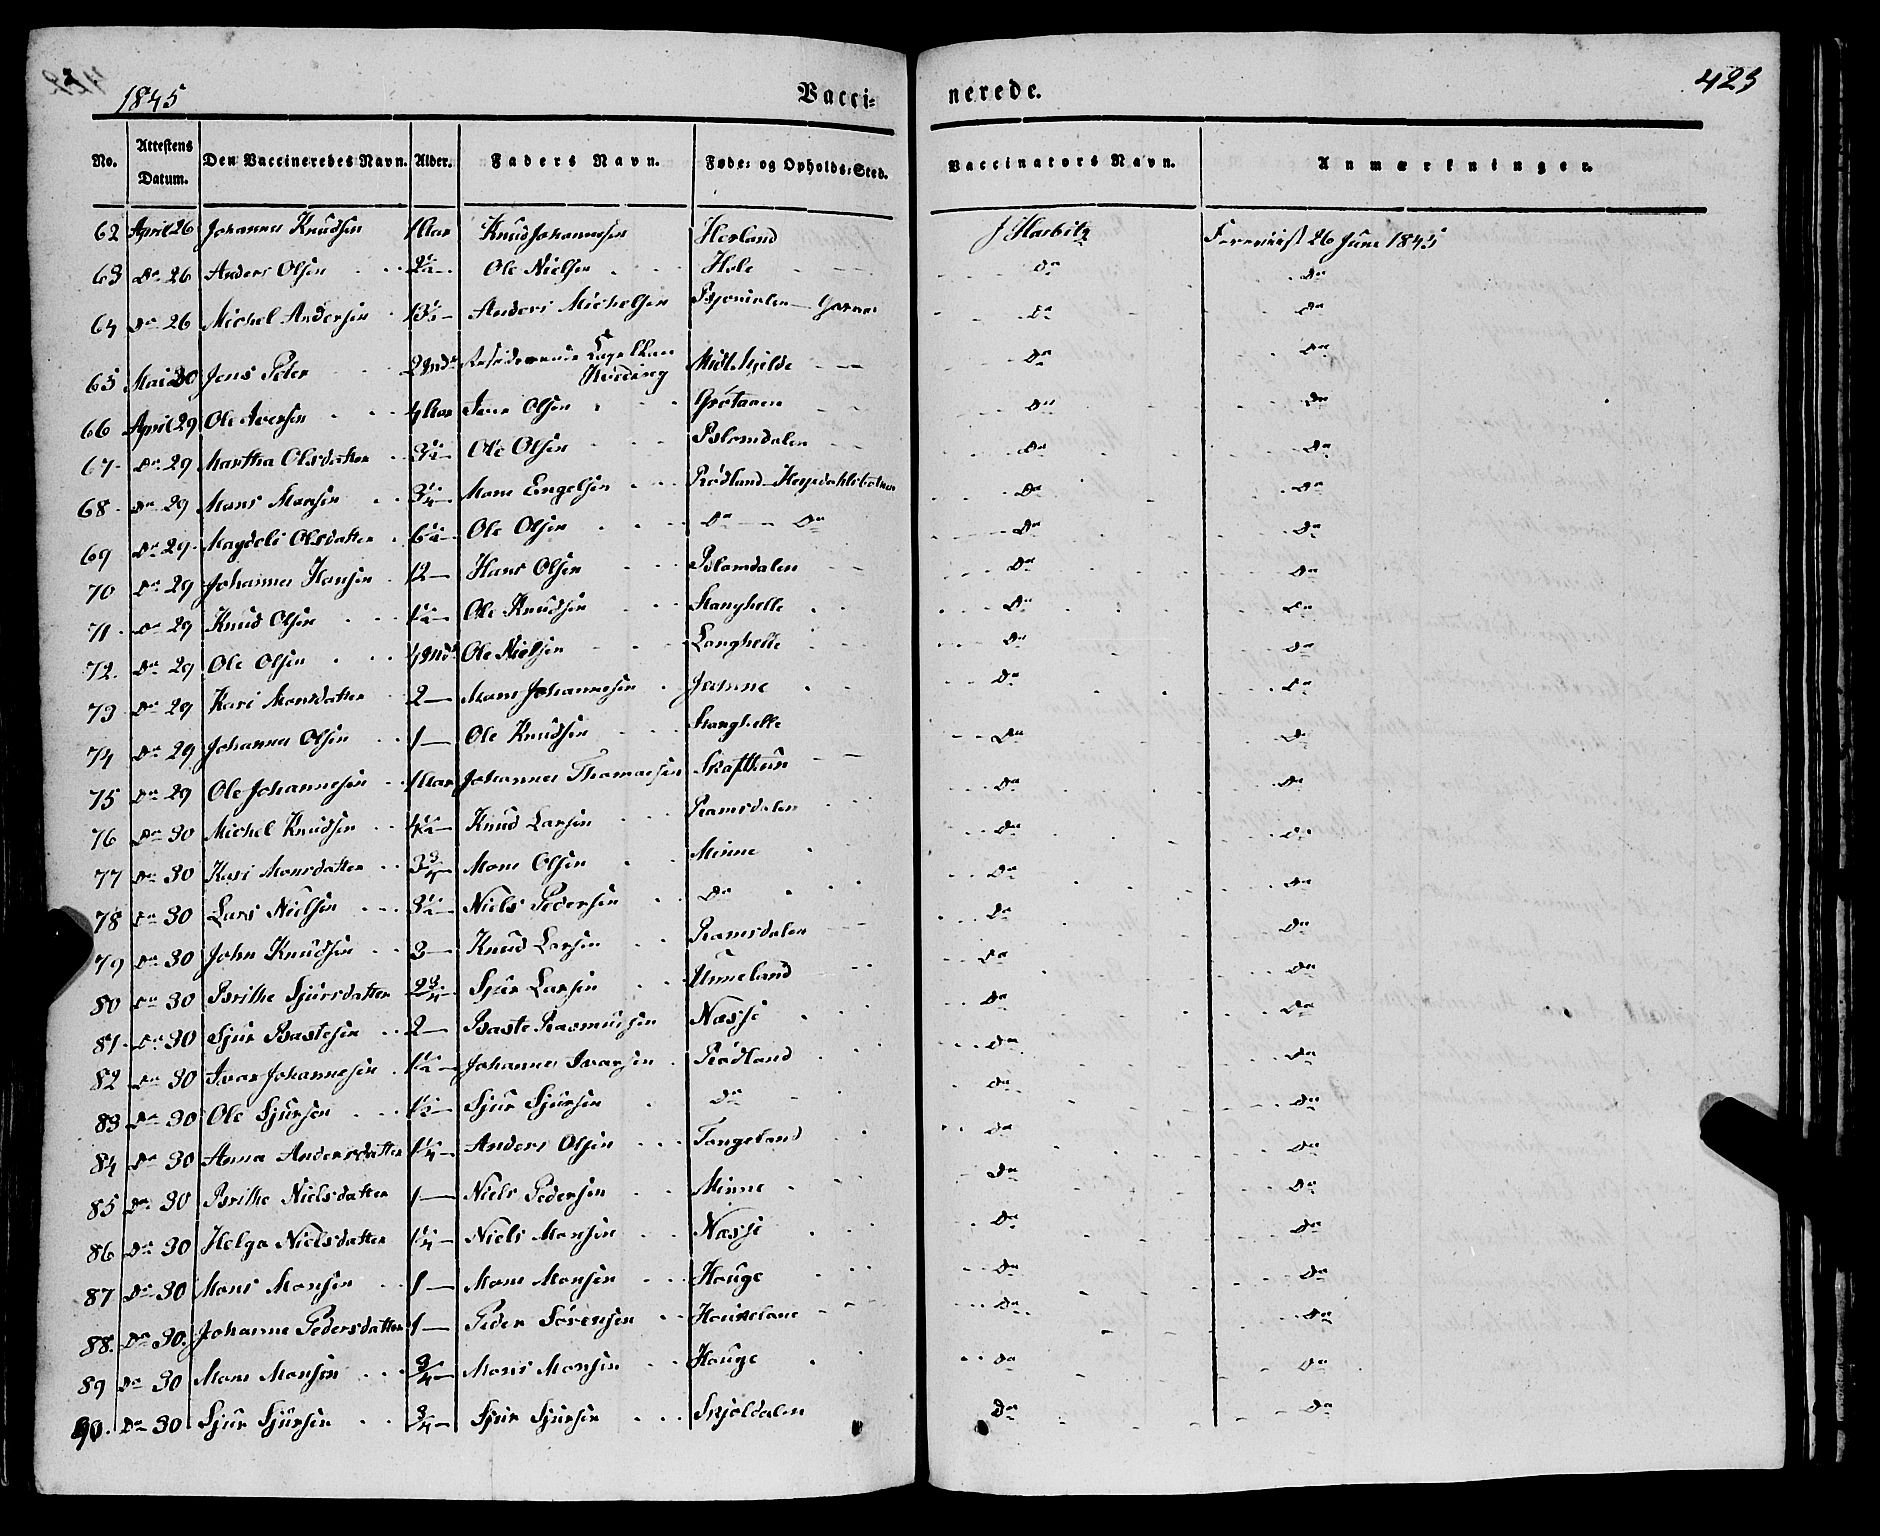 1845 Vacci- nerede. 423
No. Attestens Datum. Den Vaccineredes Navn. Alder. Faders Navn. Føde- og Opholds-Sted. Vaccinators Navn. Anmærkninger.
62 April 26 Johannes Knudsen 1 Aar Knud Johannesen Herland J Harbitz 26 Juni 1845
63 Do 26 Anders Olsen 2½ — Ole Nielsen Hole Do Do
64 Do 26 Michel Andersen 13½ — Anders Michelsen Garnes Do Do
65 Mai 30 Jens Peter 2 Mdr Hveding Midthjelde Do Do
66 April 29 Ole Iversen 4 Aar Iver Olsen Do Do
67 Do 29 Martha Olsdatter 3½ — Ole Olsen Blomdalen Do Do
68 Do 29 Mons Monsen 3¼ — Mons Engelsen Rødland Do Do
69 Do 29 Magdeli Olsdatter 6½ — Ole Olsen Do — Do Do Do
70 Do 29 Johannes Hansen 12 — Hans Olsen Blomdalen Do Do
71 Do 29 Knud Olsen 1½ — Ole Knudsen Stanghelle Do Do
72 Do 29 Ole Olsen Ole Nielsen Langhelle Do Do
73 Do 29 Kari Monsdatter 2 — Mons Johannesen Do Do
74 Do 29 Johannes Olsen 1 — Ole Knudsen Stanghelle Do Do
75 Do 29 Ole Johannesen Johannes Thomassen Skafthun Do Do
76 Do 30 Michel Knudsen 4½ — Knud Larsen Ramsdalen Do Do
77 Do 30 Kari Monsdatter 3¾ — Mons Olsen Minne Do Do
78 Do 30 Lars Nielsen 3½ — Niels Pedersen Do Do Do
79 Do 30 John Knudsen 3 — Knud Larsen Ramsdalen Do Do
80 Do 30 Brithe Sjursdatter 2¾ — Sjur Larsen Unneland Do Do
81 Do 30 Sjur Bastesen 2 — Baste Rasmussen Næsse Do Do
82 Do 30 Ivar Johannesen 1½ — Johannes Ivarsen Rødland Do Do
83 Do 30 Ole Sjursen 1½ — Sjur Sjursen Do Do Do
84 Do 30 Anna Andersdatter 1¼ — Anders Olsen Tangeland Do Do
85 Do 30 Brithe Nielsdatter 1 — Niels Pedersen Minne Do Do
86 Do 30 Helga Nielsdatter 1¼ — Niels Monsen Næsse Do Do
87 Do 30 Mons Monsen 1 — Mons Monsen Houge Do Do
88 Do 30 Johanne Pedersdatter 1 — Peder Sørensen Do Do
89 Do 30 Mons Monsen ¾ — Mons Monsen Houge Do Do
90 Do 30 Sjur Sjursen ¾ — Sjur Sjursen Skjoldalen Do Do